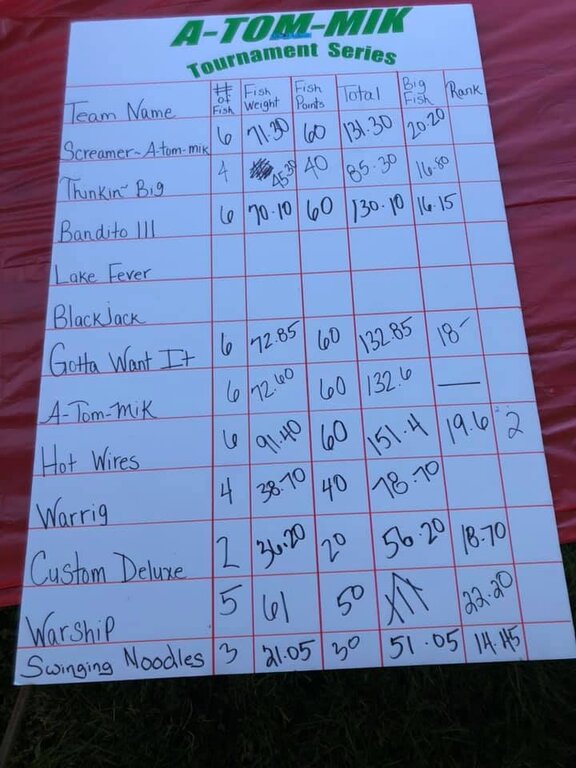 A-TOM-MIK
Tournament Series
Team Name # of Fish Fish Weight Fish Points Total Big Fish Rank
Screamer~A-tom-mik 6 71.30 60 131.30 20.20
Thinkin' Big 4 45.30 40 85.30 16.80
Bandito III 6 70.10 60 130.10 16.15
Lake Fever
Blackjack
Gotta Want It 6 72.85 60 132.85 18-
A-Tom-Mik 6 72.60 60 132.6 —
Hot Wires 6 91.40 60 151.4 19.6 2
Warrig 4 38.70 40 78.70
Custom Deluxe 2 36.20 20 56.20 18.70
Warship 5 61 50 111 22.20
Swinging Noodles 3 21.05 30 51.05 14.45